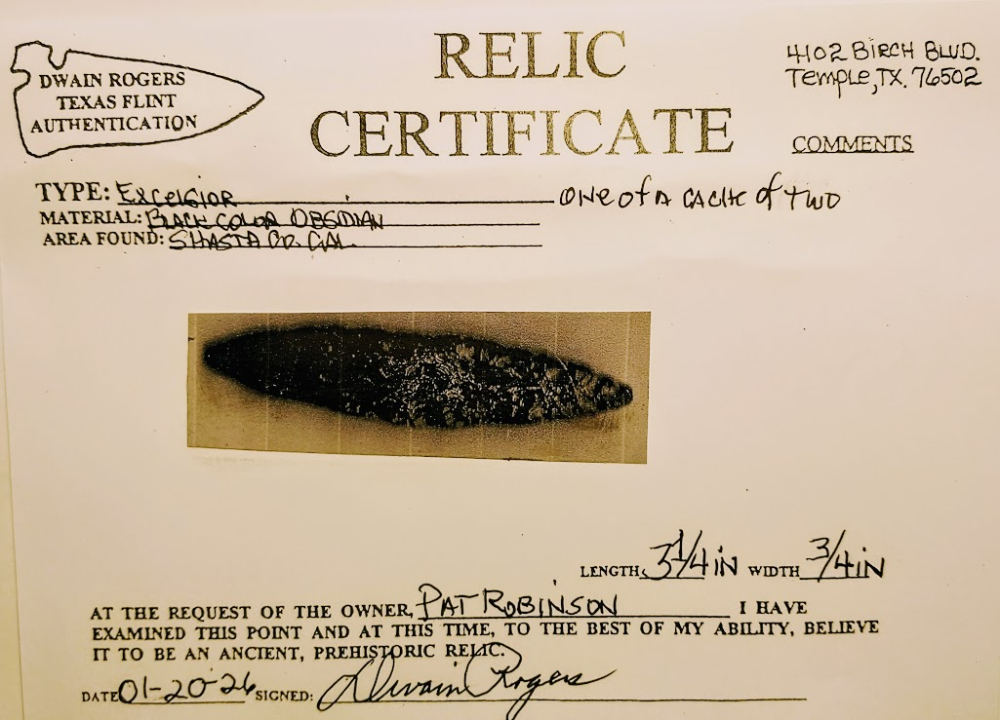 DWAIN ROGERS
TEXAS FLINT
AUTHENTICATION
RELIC
CERTIFICATE
4102 BIRCH BLVD.
TEMPLE, TX. 76502
COMMENTS
TYPE: EXCELSIOR
ONE of A CACHE of TWO
MATERIAL: BLACK COLOR OBSIDIAN
AREA FOUND: SHASTA CO. CAL.
LENGTH 3 1/4 IN WIDTH 3/4 IN
AT THE REQUEST OF THE OWNER, PAT ROBINSON I HAVE
EXAMINED THIS POINT AND AT THIS TIME, TO THE BEST OF MY ABILITY, BELIEVE
IT TO BE AN ANCIENT, PREHISTORIC RELIC.
DATE 01-20-26 SIGNED: Dwain Rogers